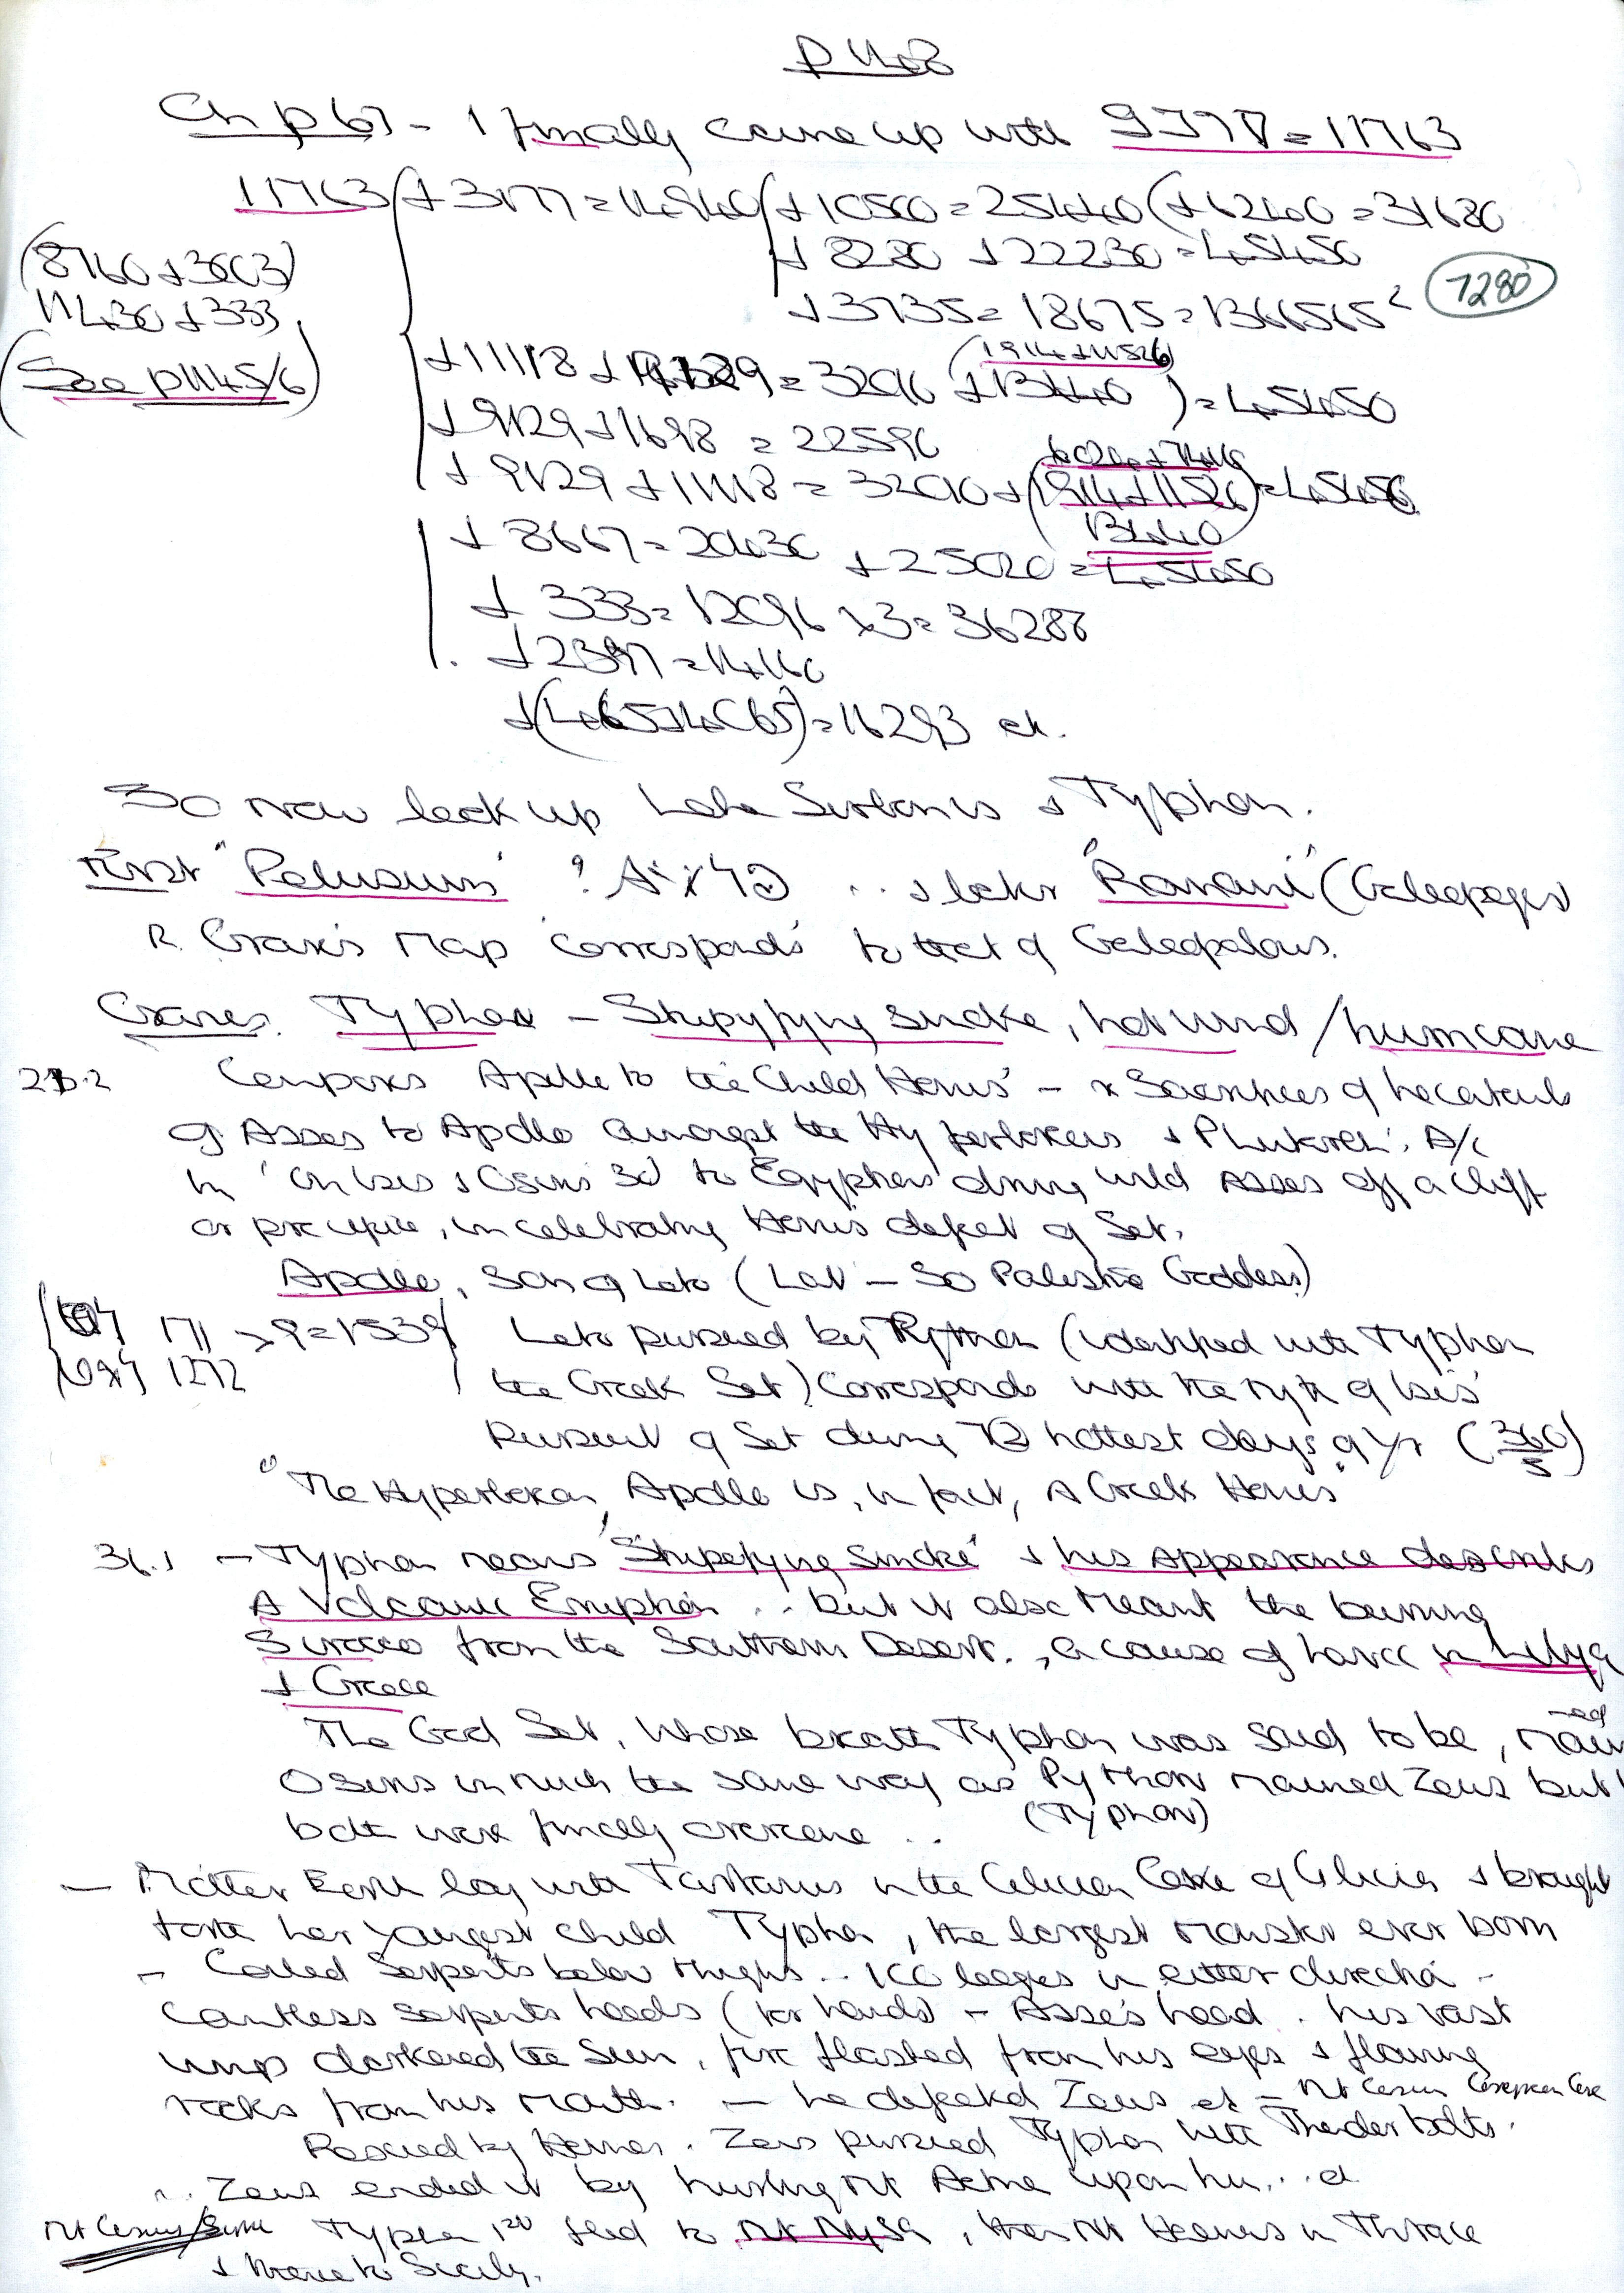 P 1148
Ch p 67 - I finally came up with = 11763
11763 + 3177 = 14940 + 10500 = 25440 (+ 6240 = 31680
+ 8280 + 22230 = 45450
(8760 + 3003)
+ 3735 = 18675 = 136.6565²
7280
11430 + 333
(See p1145/6)
(1914 + 11526)
+ 11118 + 9129 = 32010 (+ 13440) = 45450
+ 9129 + 1698 = 22590
6024 + 7416
+ 9129 + 11118 = 32010 + (1914 + 11526) = 45450
13440
+ 8667 = 20430 + 25020 = 45450
+ 333 = 12096 x 3 = 36288
+ 2397 = 14160
+ (465 + 4065) = 16293 et.
So now look up Lake Serbonis & Typhon.
First "Pelusium" ? .. & later "Ramani" (
R. Graves Map 'corresponds' to that of
Graves. Typhon - Stupefying smoke, hot wind / hurricane
21.2 Compares Apollo to 'the Child Horus' - x Sacrifices of hecatombs
of Asses to Apollo amongst the Hyperboreans & Plutarch's A/c
in 'On Isis & Osiris 30' to Egyptians driving wild Asses off a cliff
or precipice, in celebrating Horus's defeat of Set.
Apollo, son of Leto (Lat - So Palestine Goddess)
171 x 9 = 1539 Leto pursued by Python (identified with Typhon
1272 the Greek Set) corresponds with the myth of Isis'
Pursuit of Set during 72 hottest days of yr (360/5)
"The Hyperborean Apollo is, in fact, A Greek Horus"
36.1 - Typhon means 'Stupefying Smoke' & his Appearance describes
A Volcanic Eruption .. but it also meant the burning
Sirocco from the Southern Desert., a cause of havoc in Libya
& Greece
The God Set, whose breath Typhon was said to be, maimed
Osiris in much the same way as Python maimed Zeus but
both were finally overcome .. (Typhon)
- Mother Earth lay with Tartarus in the Cilician Cave of Cilicia & brought
forth her youngest child Typhon, the largest monster ever born
- Coiled Serpents below thighs .. 100 leagues in either direction -
Countless serpents heads (for hands) - Asse's head. his vast
wings darkened the Sun, fire flashed from his eyes & flaming
rocks from his mouth. - he defeated Zeus at - Mt Casius Corycian Cave
Rescued by Hermes. Zeus pursued Typhon with Thunderbolts.
.. Zeus ended it by hurling Mt Aetna upon him .. et.
Mt Casius Typhon 1st fled to Mt Nysa, then Mt Haemus in Thrace
& thence to Sicily.